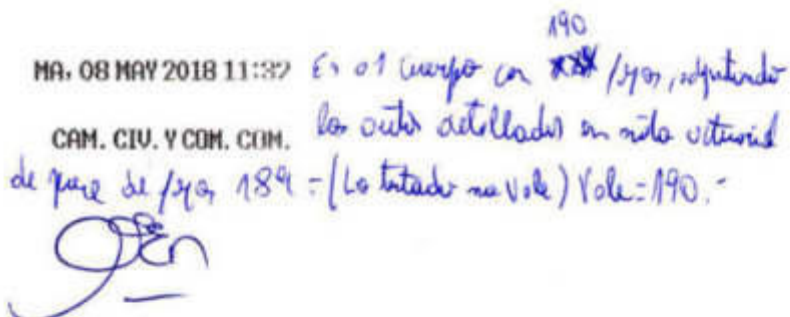 190
MA, 08 MAY 2018 11:32 En 01 Cuerpo con /fojas, adjuntando
CAM. CIV. Y COM. COM. los autos detallados en nota actuarial
de pase de fojas 189 = (Lo testado no vale) Vale = 190.-